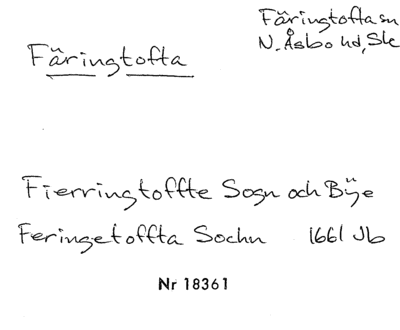 Färingtofta sn
N. Åsbo hd, Sk
Färingtofta
Fierringtoffte Sogn och Bÿe
Feringetoffta Sochn 1661 Jb
Nr 18361